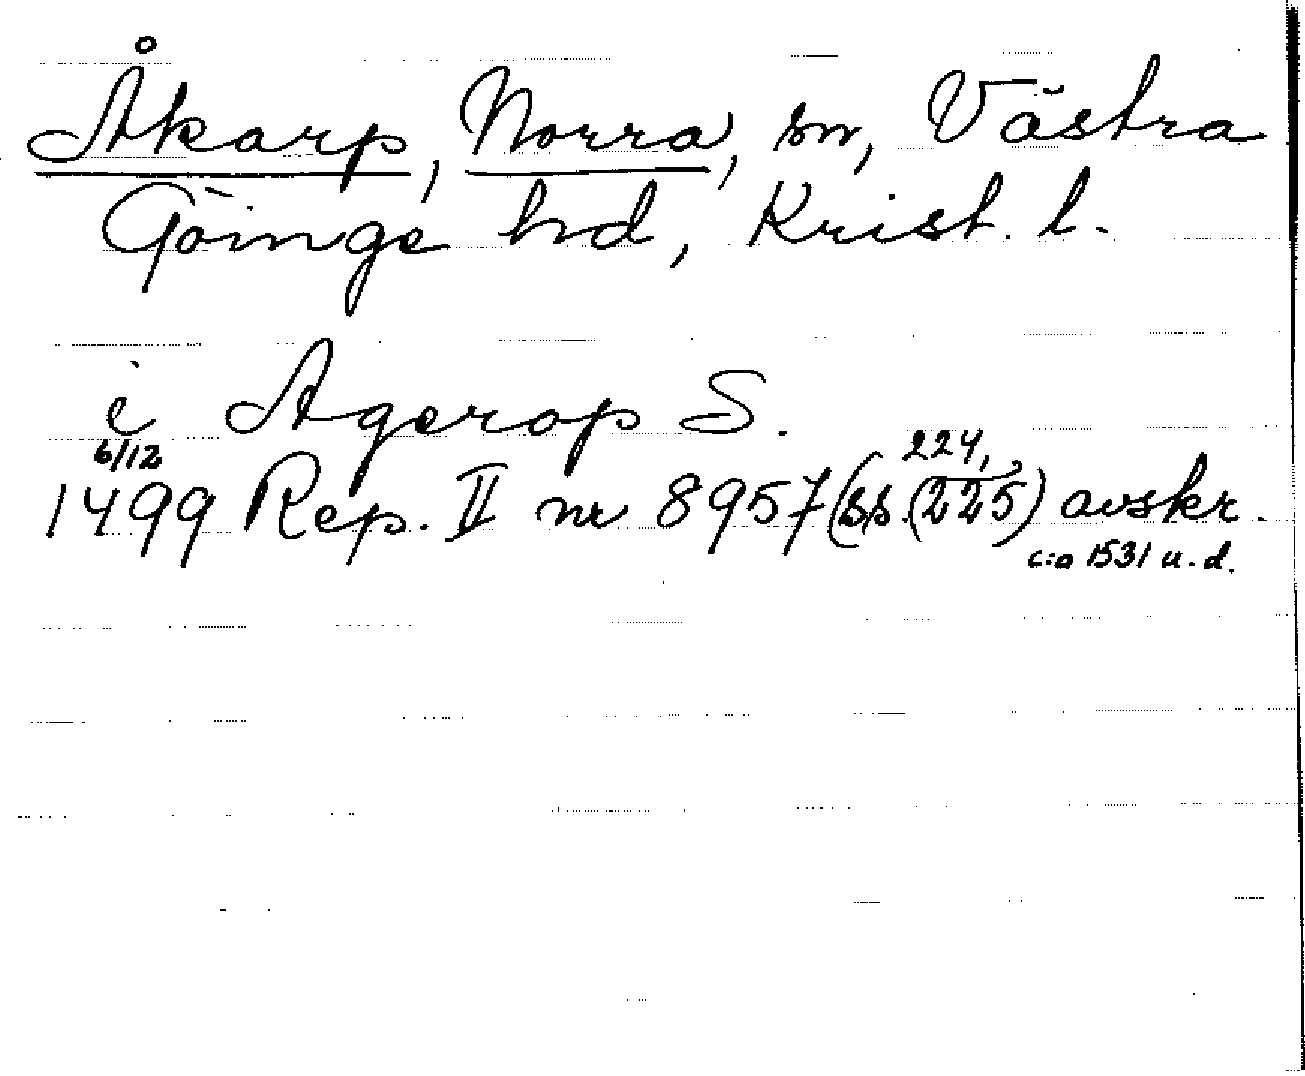 Åkarp, Norra, sn, Västra
Göinge hd, Krist. l.
i Agerop S.
6/12
1499 Rep. II nr 8957 (ss. (225) avskr.
224,
c:a 1531 u. d.